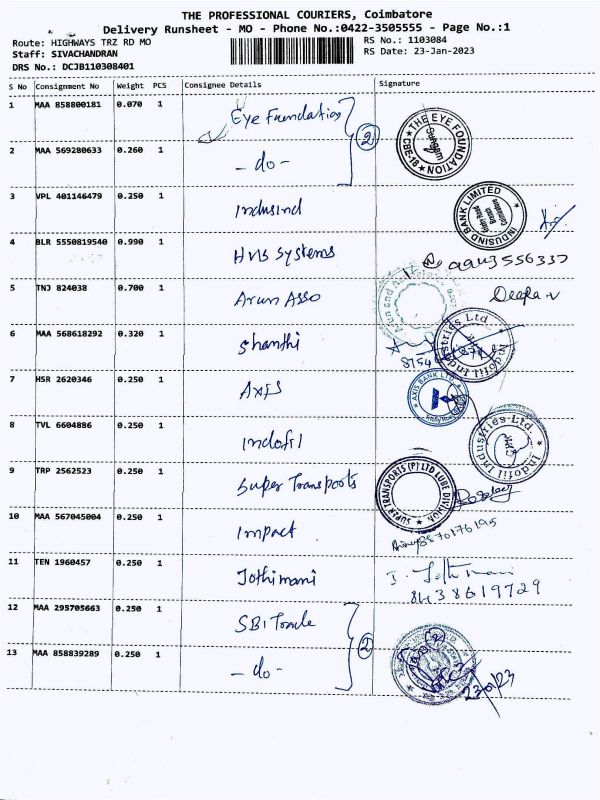 THE PROFESSIONAL COURIERS, Coimbatore
Delivery Runsheet - MO - Phone No.:0422-3505555 - Page No.:1
Route: HIGHWAYS TRZ RD MO RS No.: 1103084
Staff: SIVACHANDRAN RS Date: 23-Jan-2023
DRS No.: DCJB110308401
S No Consignment No Weight PCS Consignee Details Signature
1 MAA 858800181 0.070 1 Eye Foundation THE EYE FOUNDATION CBE-18
2
2 MAA 569280633 0.260 1 - do -
3 VPL 401146479 0.250 1 Indusind INDUSIND BANK LIMITED Coimbatore Branch
4 BLR 5550819540 0.990 1 HVB Systems
5 TNJ 824038 0.700 1 Arun Asso Deepa.V
6 MAA 568618292 0.320 1 Shanthi Indofil Industries Ltd.
7 HSR 2620346 0.250 1 AXIS AXIS BANK LTD.
8 TVL 6604886 0.250 1 Indofil Indofil Industries-Ltd.
9 TRP 2562523 0.250 1 Super Transports SUPER TRANSPORTS (P) LTD LUBE DIVISION
10 MAA 567045004 0.250 1 Impact
11 TEN 1960457 0.250 1 Jothimani J. Jothimani
8438619729
12 MAA 295705663 0.250 1 SBI Trade
2
13 MAA 858839289 0.250 1 - do - 23/01/23